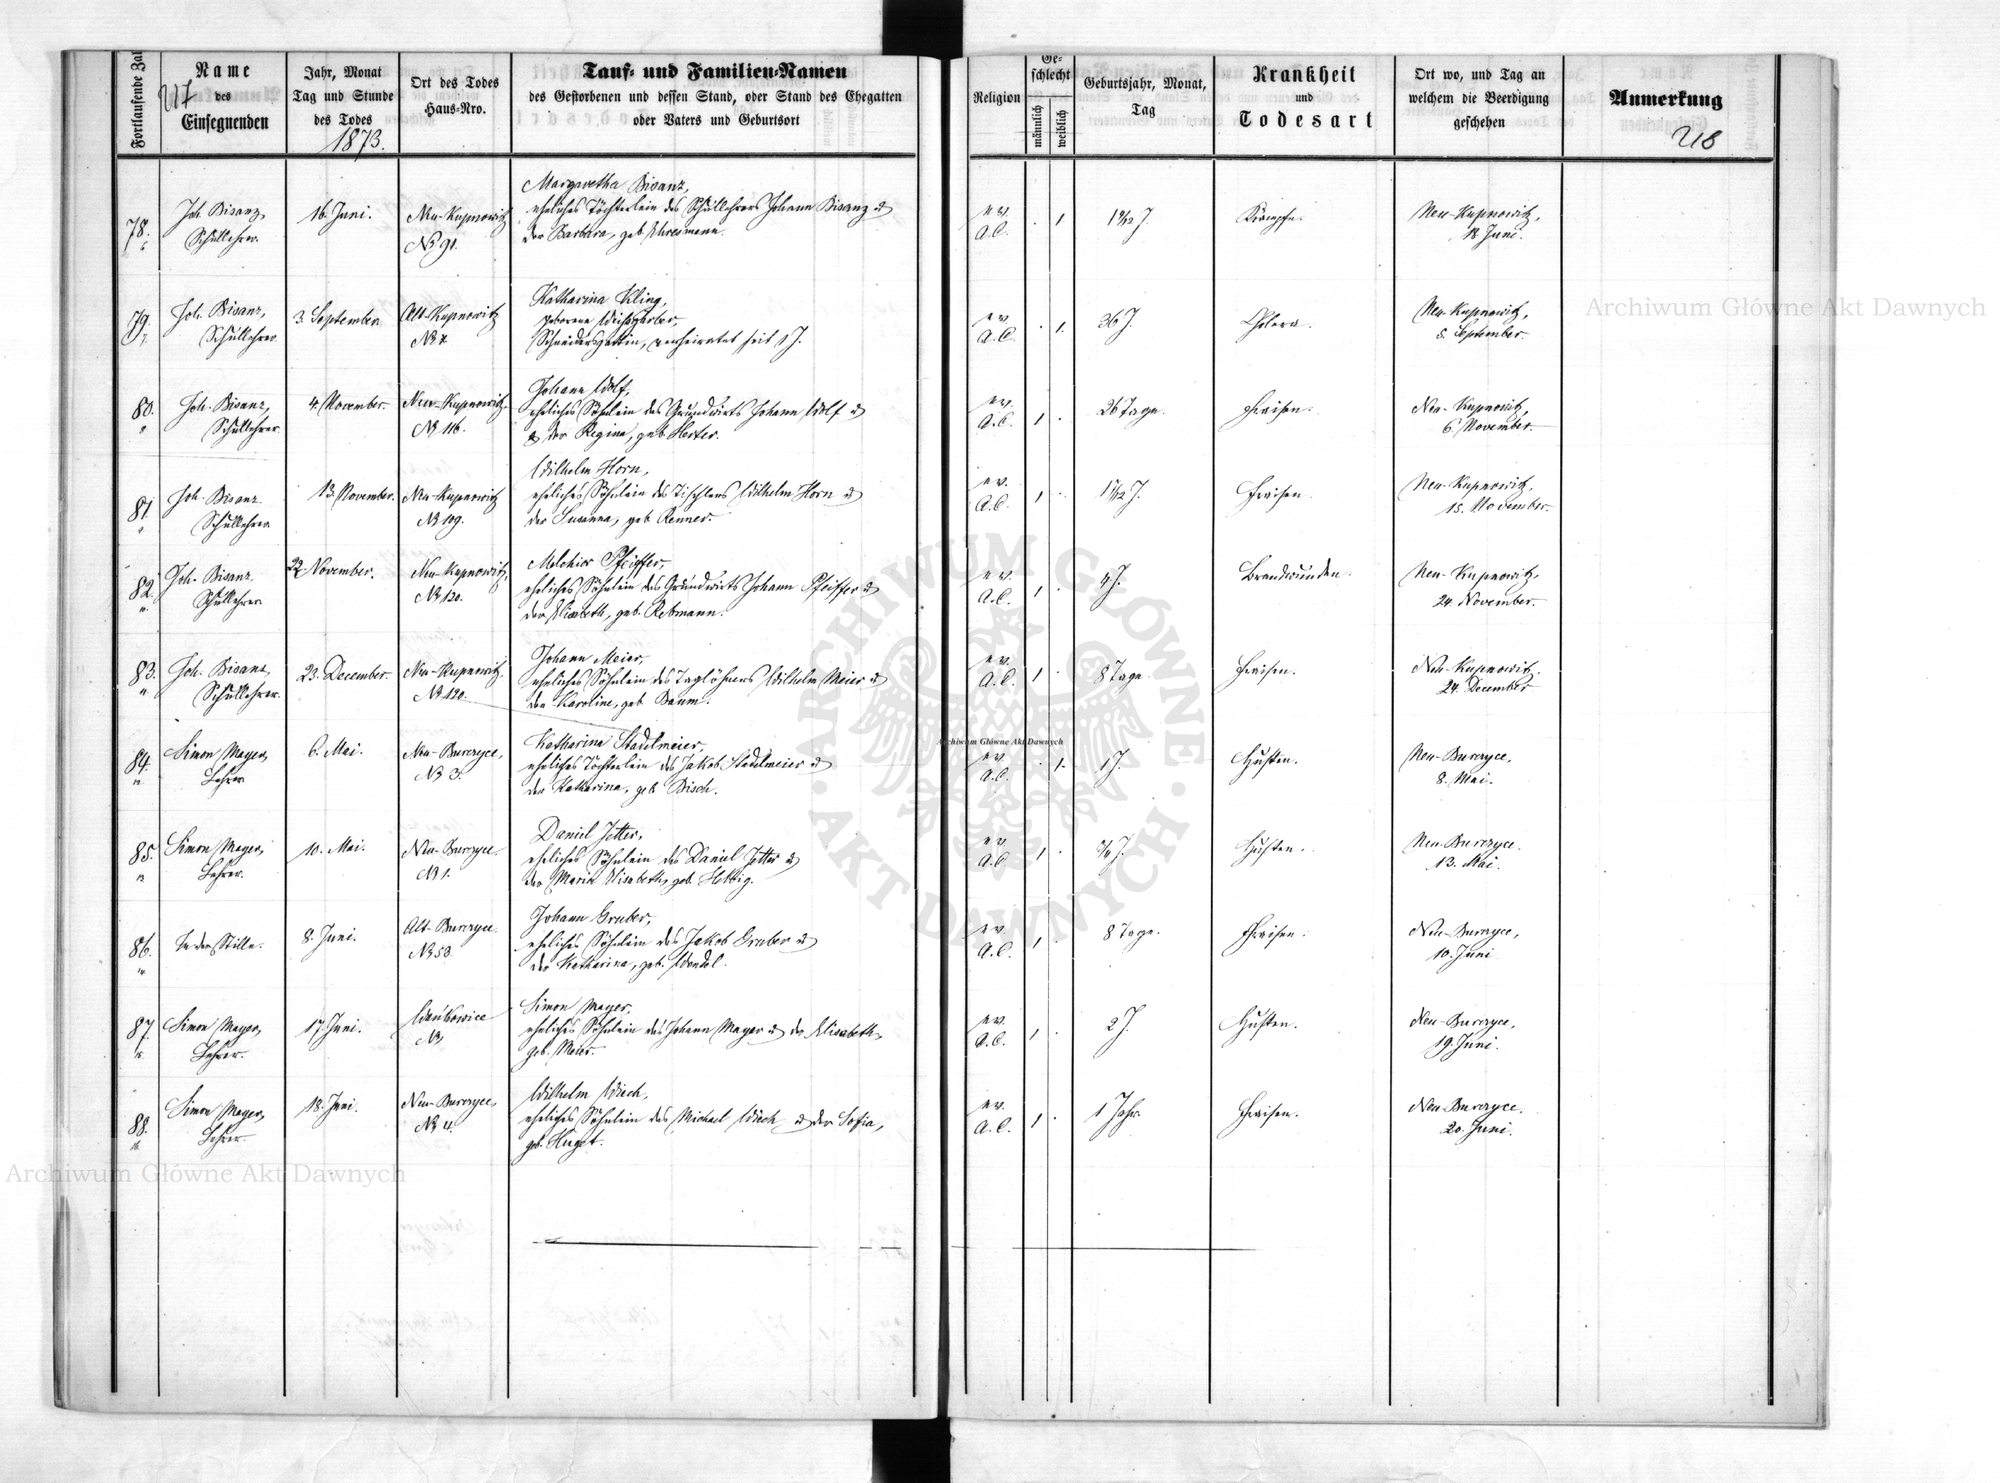 217
Fortlaufende Zal
Name
des
Einsegnenden
Jahr, Monat
Tag und Stunde
des Todes
1873.
Ort des Todes
Haus-Nro.
Tauf- und Familien-Namen
des Gestorbenen und dessen Stand, oder Stand des Ehegatten
oder Vaters und Geburtsort
Religion
Ge-
schlecht
männlich
weiblich
Geburtsjahr, Monat,
Tag
Krankheit
und
Todesart
Ort wo, und Tag an
welchem die Beerdigung
geschehen
Anmerkung
218
78.
Joh. Bisanz,
Schullehrer.
16. Juni.
Neu-Kupnowitz
No 91.
Margaretha Bisanz,
eheliches Töchterlein des Schullehrers Johann Bisanz u
der Barbara, geb.
ev.
A.C.
1
Krämpfe.
Neu-Kupnowitz,
18. Juni.
79.
Joh. Bisanz,
Schullehrer.
3. September
Alt-Kupnowitz
Katharina Kling,
geborene Weisgerber,
Schneidersgattin, verheiratet seit 1 J.
ev.
A.C.
1.
36 J.
Cholera.
Neu-Kupnowitz,
5. September.
80.
Joh. Bisanz,
Schullehrer.
4. November.
Neu-Kupnowitz.
No 116.
Johann Wolf,
eheliches Söhnlein des Grundwirts Johann Wolf u
u der Regina, geb. Herter.
ev.
A.C.
1
26 Tage.
Fraisen.
Neu-Kupnowitz,
6. November.
81.
Joh. Bisanz
Schullehrer.
13. November.
Neu-Kupnowitz
No 109.
Wilhelm Horn,
eheliches Söhnlein des Tischlers Wilhelm Horn u
der Susanna, geb. Renner.
ev.
A.C.
1
Fraisen.
Neu-Kupnowitz.
15. November.
82.
Joh. Bisanz.
Schullehrer
22. November.
Neu-Kupnowitz,
No 120.
Melchior Pfeiffer,
eheliches Söhnlein des Grundwirts Johann Pfeiffer u
der Elisabeth, geb. Rebmann.
ev.
A.C.
1
4 J.
Brandwunden.
Neu-Kupnowitz.
24. November.
83.
Joh. Bisanz
Schullehrer.
23. December.
Neu-Kupnowitz.
No 120.
Johann Meier,
eheliches Söhnlein des Taglöhners Wilhelm Meier u
der Karoline, geb. Baum.
ev.
A.C.
1
8 Tage.
Fraisen.
Neu-Kupnowitz.
24. December
84.
Simon Mayer,
Lehrer
6. Mai.
Neu-Burczyce,
No 3.
Katharina Stadelmeier,
eheliches Töchterlein des Jakob Stadelmeier u
der Katharina, geb. Bisch.
ev.
A.C.
1.
1 J.
Husten.
Neu-Burczyce,
8. Mai.
85.
Simon Mayer,
Lehrer.
10. Mai.
Neu-Burczyce.
No 1.
Daniel Jotter,
eheliches Söhnlein des Daniel Jotter u
der Maria Elisabeth, geb. Hettig.
ev.
A.C
1
Husten.
Neu-Burczyce.
13. Mai.
86.
In der Stille.
8. Juni.
Alt-Burczyce.
No 50.
Johann Gruber,
eheliches Söhnlein des Jakob Gruber u
der Katharina, geb. Wendel.
ev.
A.C.
1
8 Tage.
Fraisen.
Neu-Burczyce,
10. Juni
87.
Simon Mayer,
Lehrer.
17. Juni.
No
Simon Mayer,
eheliches Söhnlein des Johann Mayer u der Elisabeth,
geb. Meier.
ev.
A.C.
1
2 J.
Husten.
Neu-Burczyce,
19. Juni.
88.
Simon Mayer,
Lehrer.
18. Juni.
Neu-Burczyce,
No 4.
Wilhelm Wiech,
eheliches Söhnlein des Michael Wiech u der Sofia,
geb. Huget.
ev.
A.C.
1
1 Jahr.
Fraisen.
Neu-Burczyce.
20. Juni.
Archiwum Główne Akt Dawnych
Archiwum Główne Akt Dawnych
Archiwum Główne Akt Dawnych
ARCHIWUM GŁÓWNE
AKT DAWNYCH